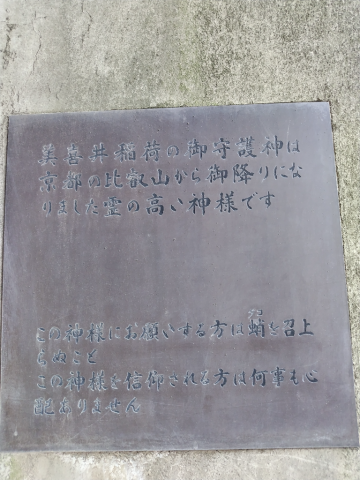 美喜井稲荷の御守護神は
京都の比叡山から御降りにな
りました霊の高い神様です
この神様にお願いする方は蛸を召上
らぬこと
この神様を信仰される方は何事も心
配ありません